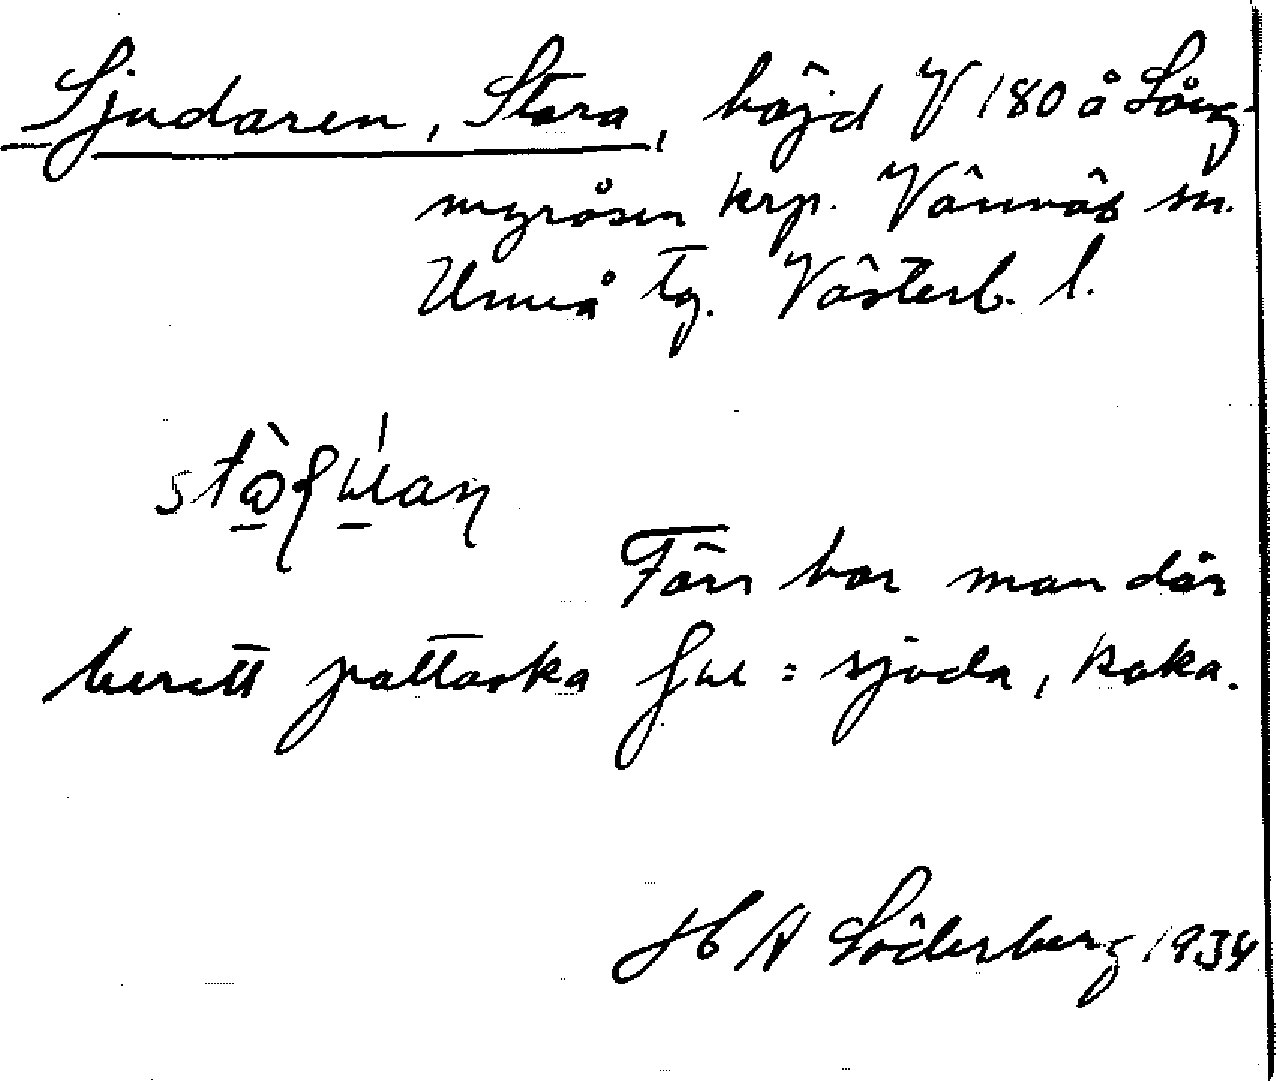 Sjudaren, Stora, höjd V 180 å Lång-
myråsen krp. Vännäs sn.
Umeå tg. Västerb. l.
Förr har man där
berett pottaska ʃʉ = sjuda, koka.
H A Söderberg 1934